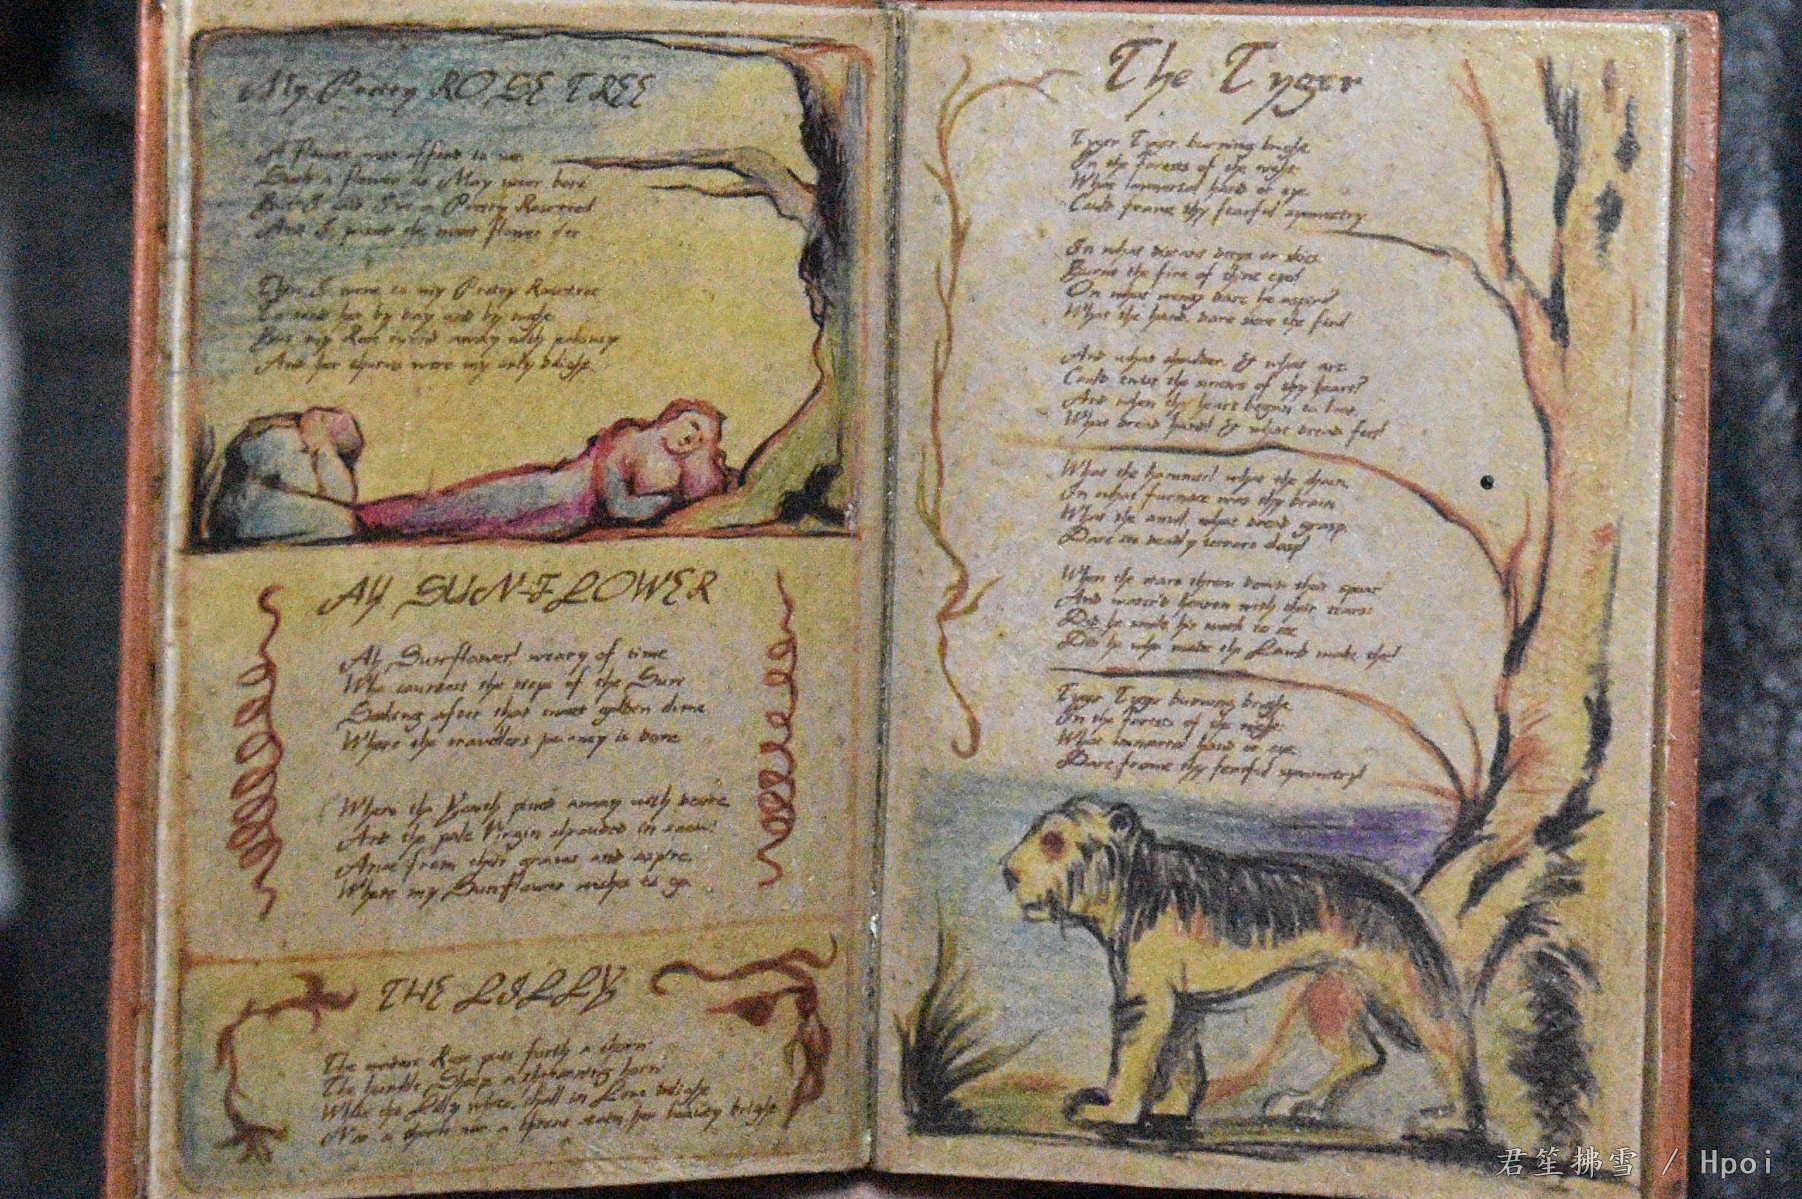 My Pretty ROSE TREE
A flower was offerd to me
Such a flower as May never bore
But I said I've a Pretty Rosetree
And I passed the sweet flower o'er
Then I went to my Pretty Rosetree
To tend her by day and by night
But my Rose turnd away with jealousy
And her thorns were my only delight
AH SUN-FLOWER
Ah Sunflower! weary of time
Who countest the steps of the Sun
Seeking after that sweet golden clime
Where the travellers journey is done
Where the Youth pined away with desire
And the pale Virgin shrouded in snow
Arise from their graves and aspire
Where my Sunflower wishes to go
THE LILLY
The modest Rose puts forth a thorn
The humble Sheep a threatning horn
While the Lilly white, shall in Love delight
Nor a thorn nor a threat stain her beauty bright
The Tyger
Tyger Tyger burning bright
In the forests of the night
What immortal hand or eye
Could frame thy fearful symmetry
In what distant deeps or skies
Burnt the fire of thine eyes?
On what wings dare he aspire?
What the hand, dare seize the fire?
And what shoulder, & what art
Could twist the sinews of thy heart?
And when thy heart began to beat
What dread hand? & what dread feet?
What the hammer? what the chain
In what furnace was thy brain
What the anvil, what dread grasp
Dare its deadly terrors clasp?
When the stars threw down their spears
And water'd heaven with their tears
Did he smile his work to see
Did he who made the Lamb make thee?
Tyger Tyger burning bright
In the forests of the night
What immortal hand or eye
Dare frame thy fearful symmetry?
君笙拂雪 / Hpoi